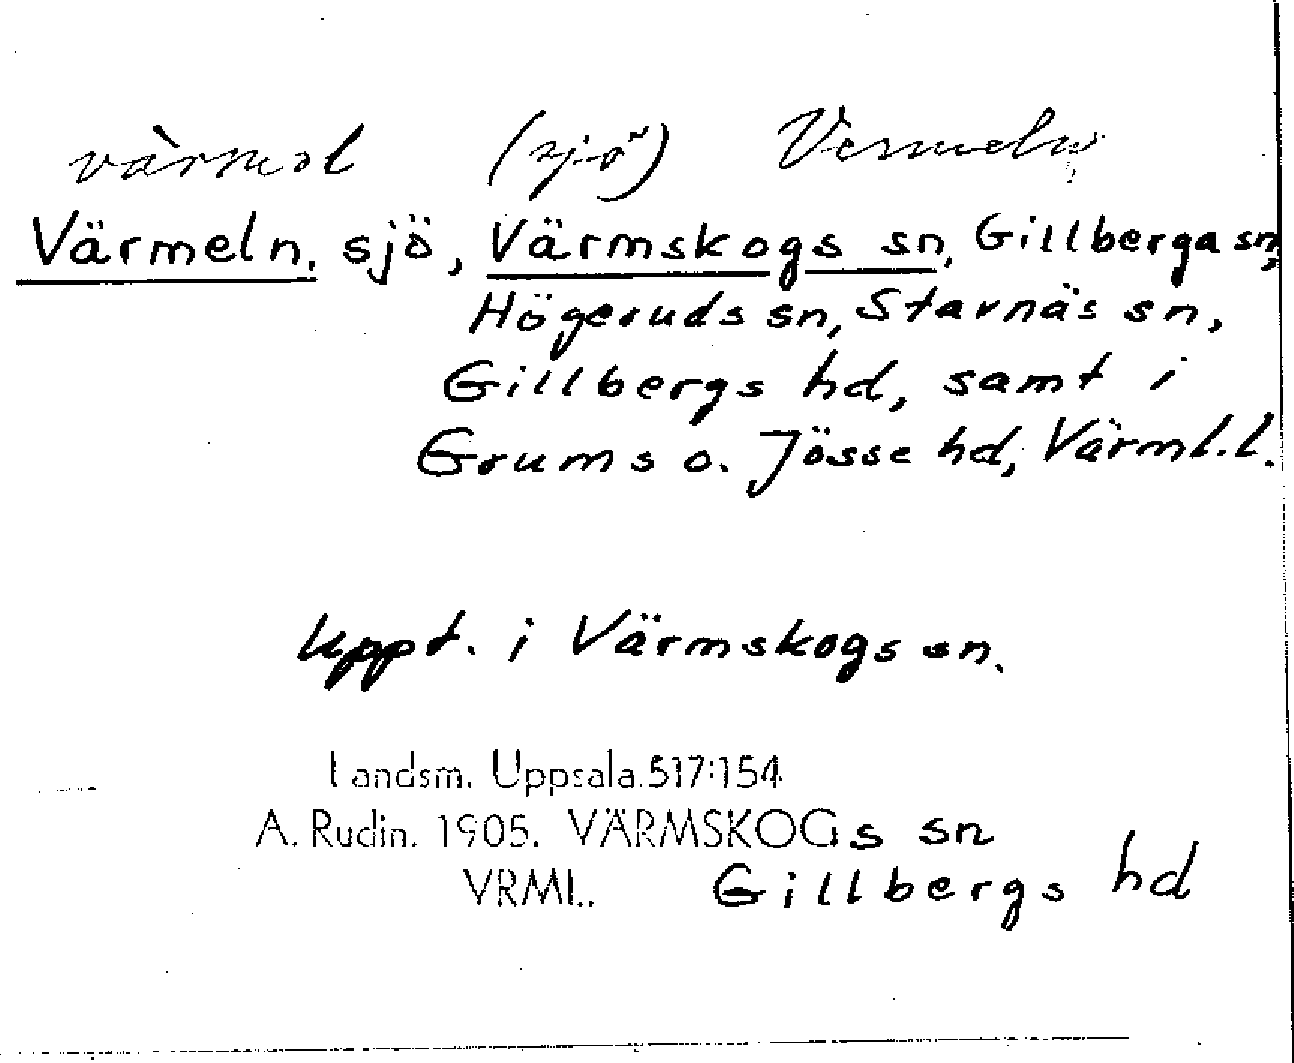 vàrməl (sjö) Vermeln
Värmeln, sjö, Värmskogs sn, Gillberga sn,
Högeruds sn, Stavnäs sn,
Gillbergs hd, samt i
Grums o. Jösse hd, Värml. l.
Uppt. i Värmskogs sn.
Landsm. Uppsala. 517:154
A. Rudin. 1905. VÄRMSKOGs sn
VRML. Gillbergs hd